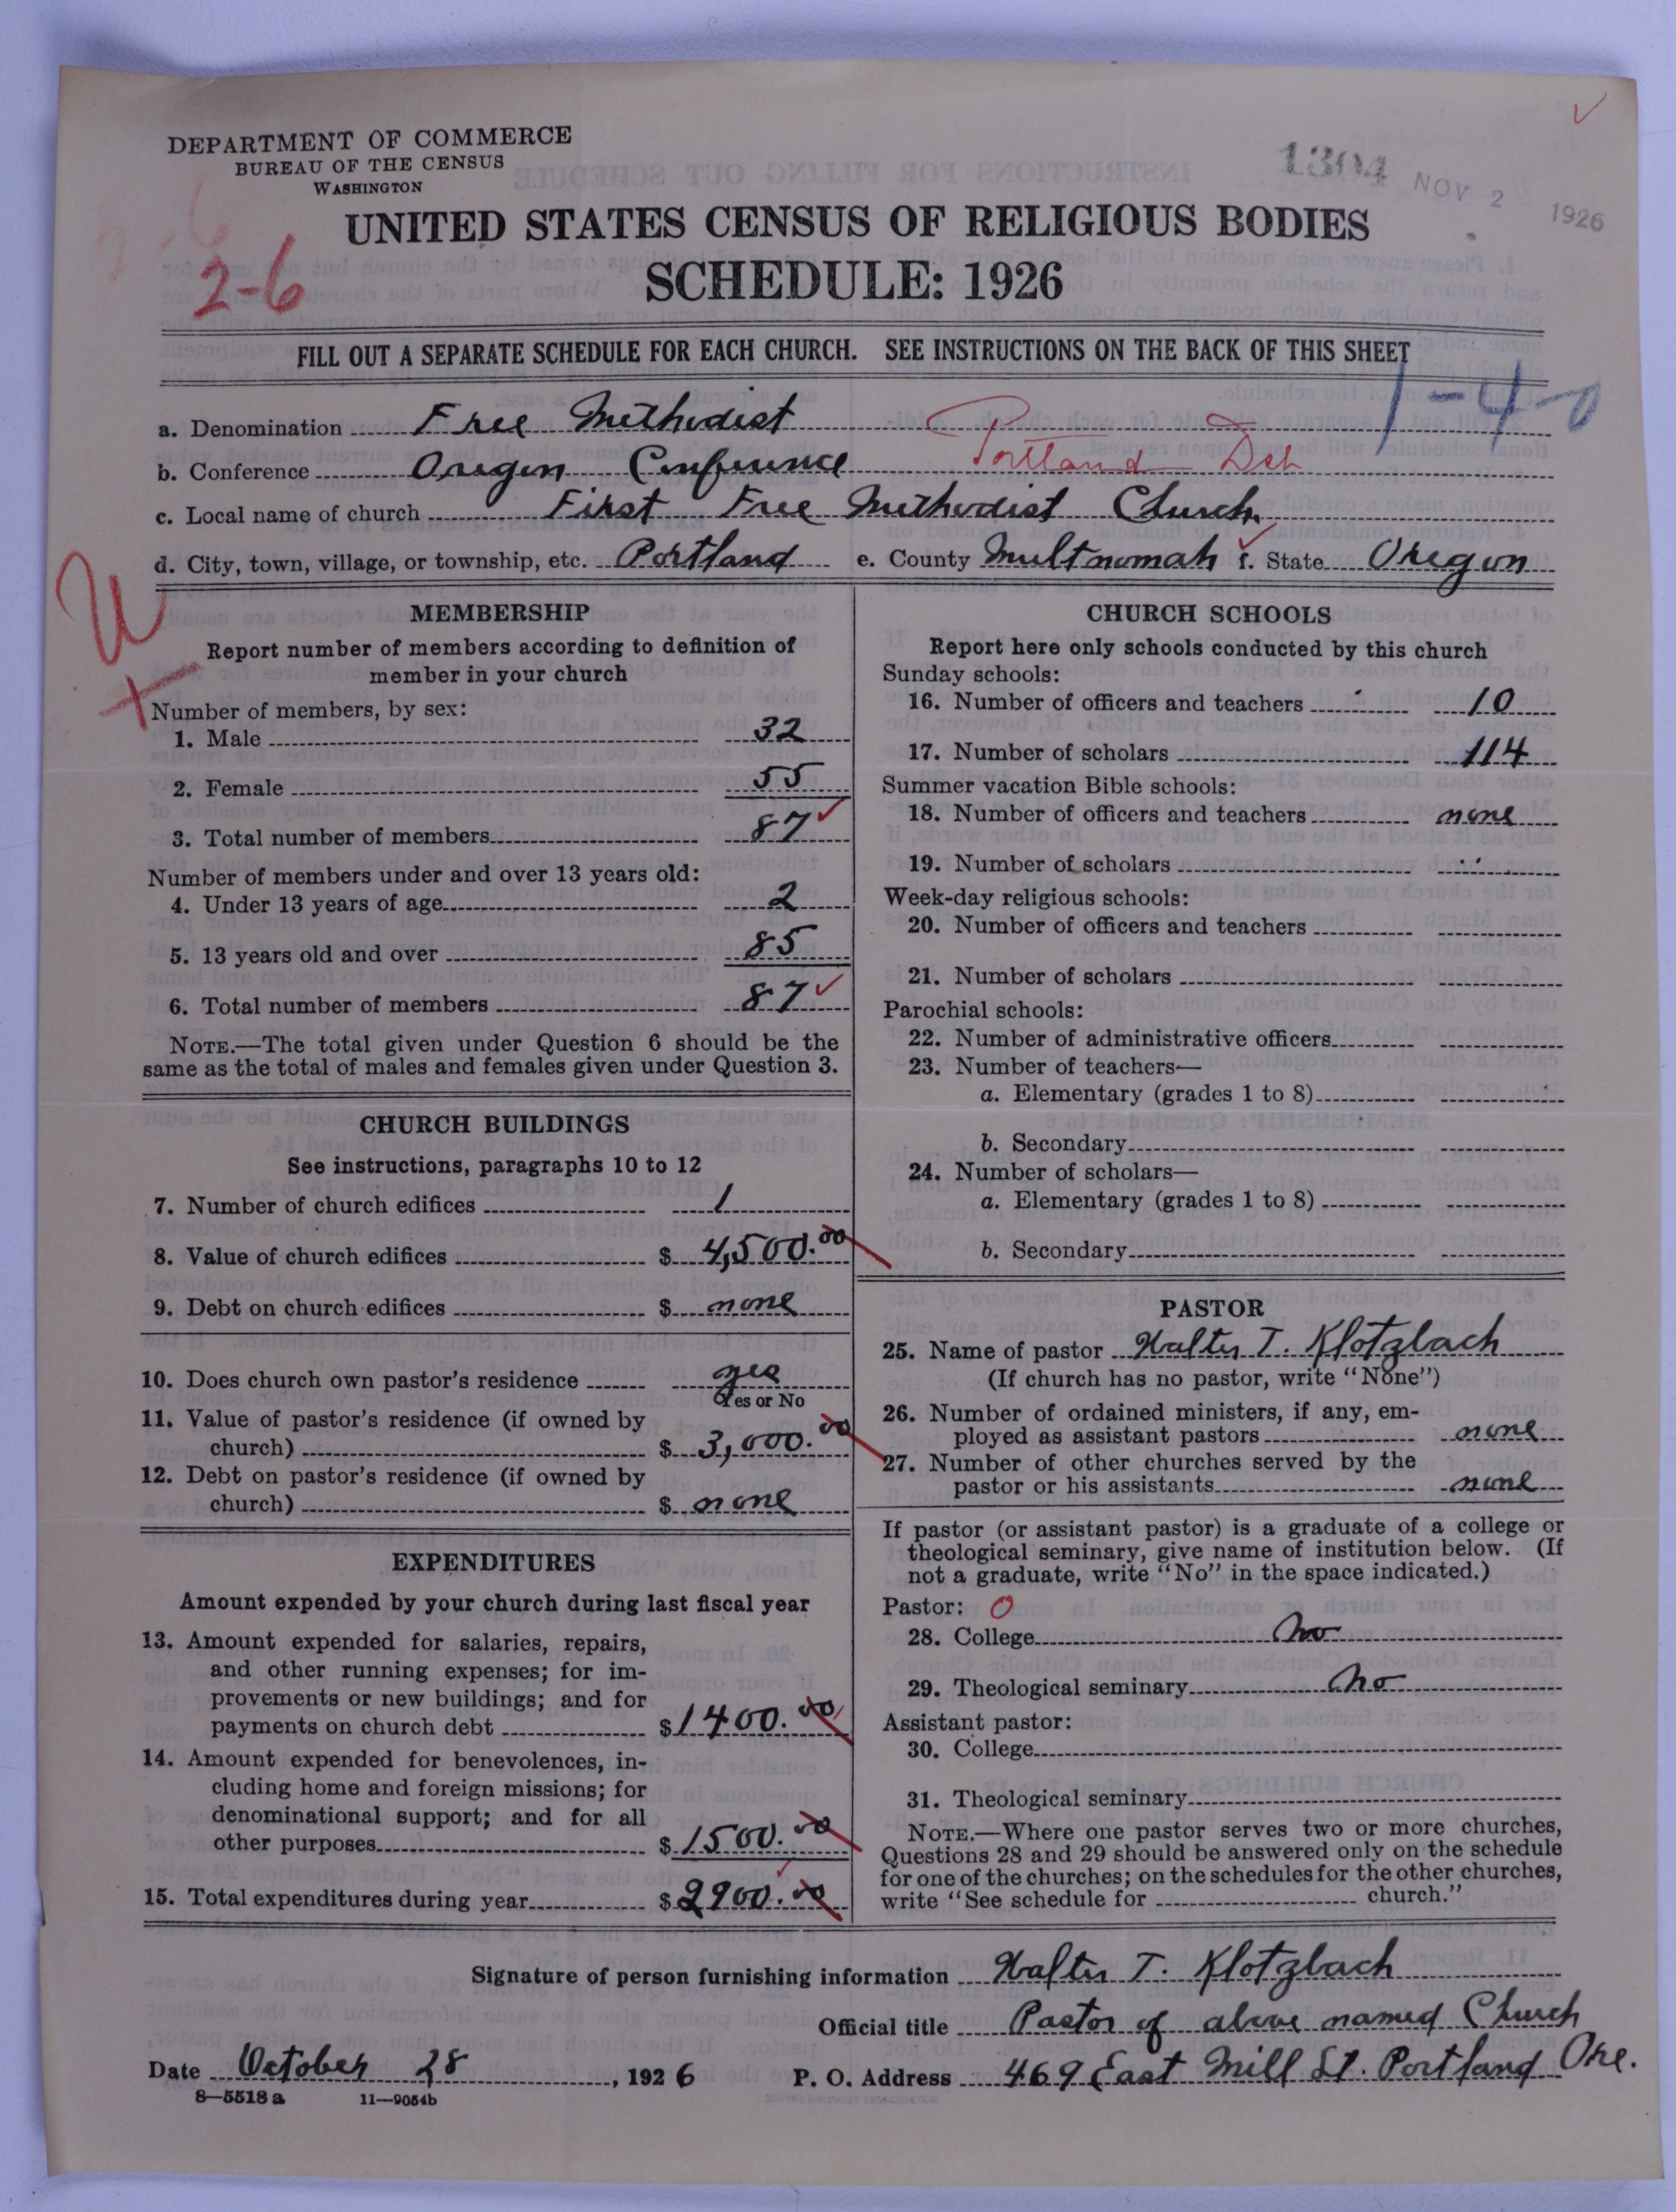 DEPARTMENT OF COMMERCE
BUREAU OF THE CENSUS
WASHINGTON
1304
NOV 2 1926
UNITED STATES CENSUS OF RELIGIOUS BODIES
SCHEDULE: 1926
2-6
FILL OUT A SEPARATE SCHEDULE FOR EACH CHURCH. SEE INSTRUCTIONS ON THE BACK OF THIS SHEET
1-4-0
a. Denomination Free Methodist
b. Conference Oregon Conference Portland Dch
c. Local name of church First Free Methodist Church
d. City, town, village, or township, etc. Portland e. County Multnomah f. State Oregon
U
MEMBERSHIP
Report number of members according to definition of
member in your church
Number of members, by sex:
1. Male 32
2. Female 55
3. Total number of members 87
Number of members under and over 13 years old:
4. Under 13 years of age 2
5. 13 years old and over 85
6. Total number of members 87
NOTE.—The total given under Question 6 should be the
same as the total of males and females given under Question 3.
CHURCH BUILDINGS
See instructions, paragraphs 10 to 12
7. Number of church edifices 1
8. Value of church edifices $ 4,500.00
9. Debt on church edifices $ none
10. Does church own pastor's residence yes
Yes or No
11. Value of pastor's residence (if owned by
church) $ 3,000.00
12. Debt on pastor's residence (if owned by
church) $ none
EXPENDITURES
Amount expended by your church during last fiscal year
13. Amount expended for salaries, repairs,
and other running expenses; for im-
provements or new buildings; and for
payments on church debt $ 1400.00
14. Amount expended for benevolences, in-
cluding home and foreign missions; for
denominational support; and for all
other purposes $ 1500.00
15. Total expenditures during year $ 2900.00
CHURCH SCHOOLS
Report here only schools conducted by this church
Sunday schools:
16. Number of officers and teachers 10
17. Number of scholars 114
Summer vacation Bible schools:
18. Number of officers and teachers none
19. Number of scholars
Week-day religious schools:
20. Number of officers and teachers
21. Number of scholars
Parochial schools:
22. Number of administrative officers
23. Number of teachers—
a. Elementary (grades 1 to 8)
b. Secondary
24. Number of scholars—
a. Elementary (grades 1 to 8)
b. Secondary
PASTOR
25. Name of pastor Walter T. Klotzbach
(If church has no pastor, write "None")
26. Number of ordained ministers, if any, em-
ployed as assistant pastors none
27. Number of other churches served by the
pastor or his assistants none
If pastor (or assistant pastor) is a graduate of a college or
theological seminary, give name of institution below. (If
not a graduate, write "No" in the space indicated.)
Pastor: 0
28. College No
29. Theological seminary No
Assistant pastor:
30. College
31. Theological seminary
NOTE.—Where one pastor serves two or more churches,
Questions 28 and 29 should be answered only on the schedule
for one of the churches; on the schedules for the other churches,
write "See schedule for church."
Signature of person furnishing information Walter T. Klotzbach
Official title Pastor of above named Church
Date October 28, 1926 P. O. Address 469 East Mill St. Portland Ore.
8—5518 a 11—9054b